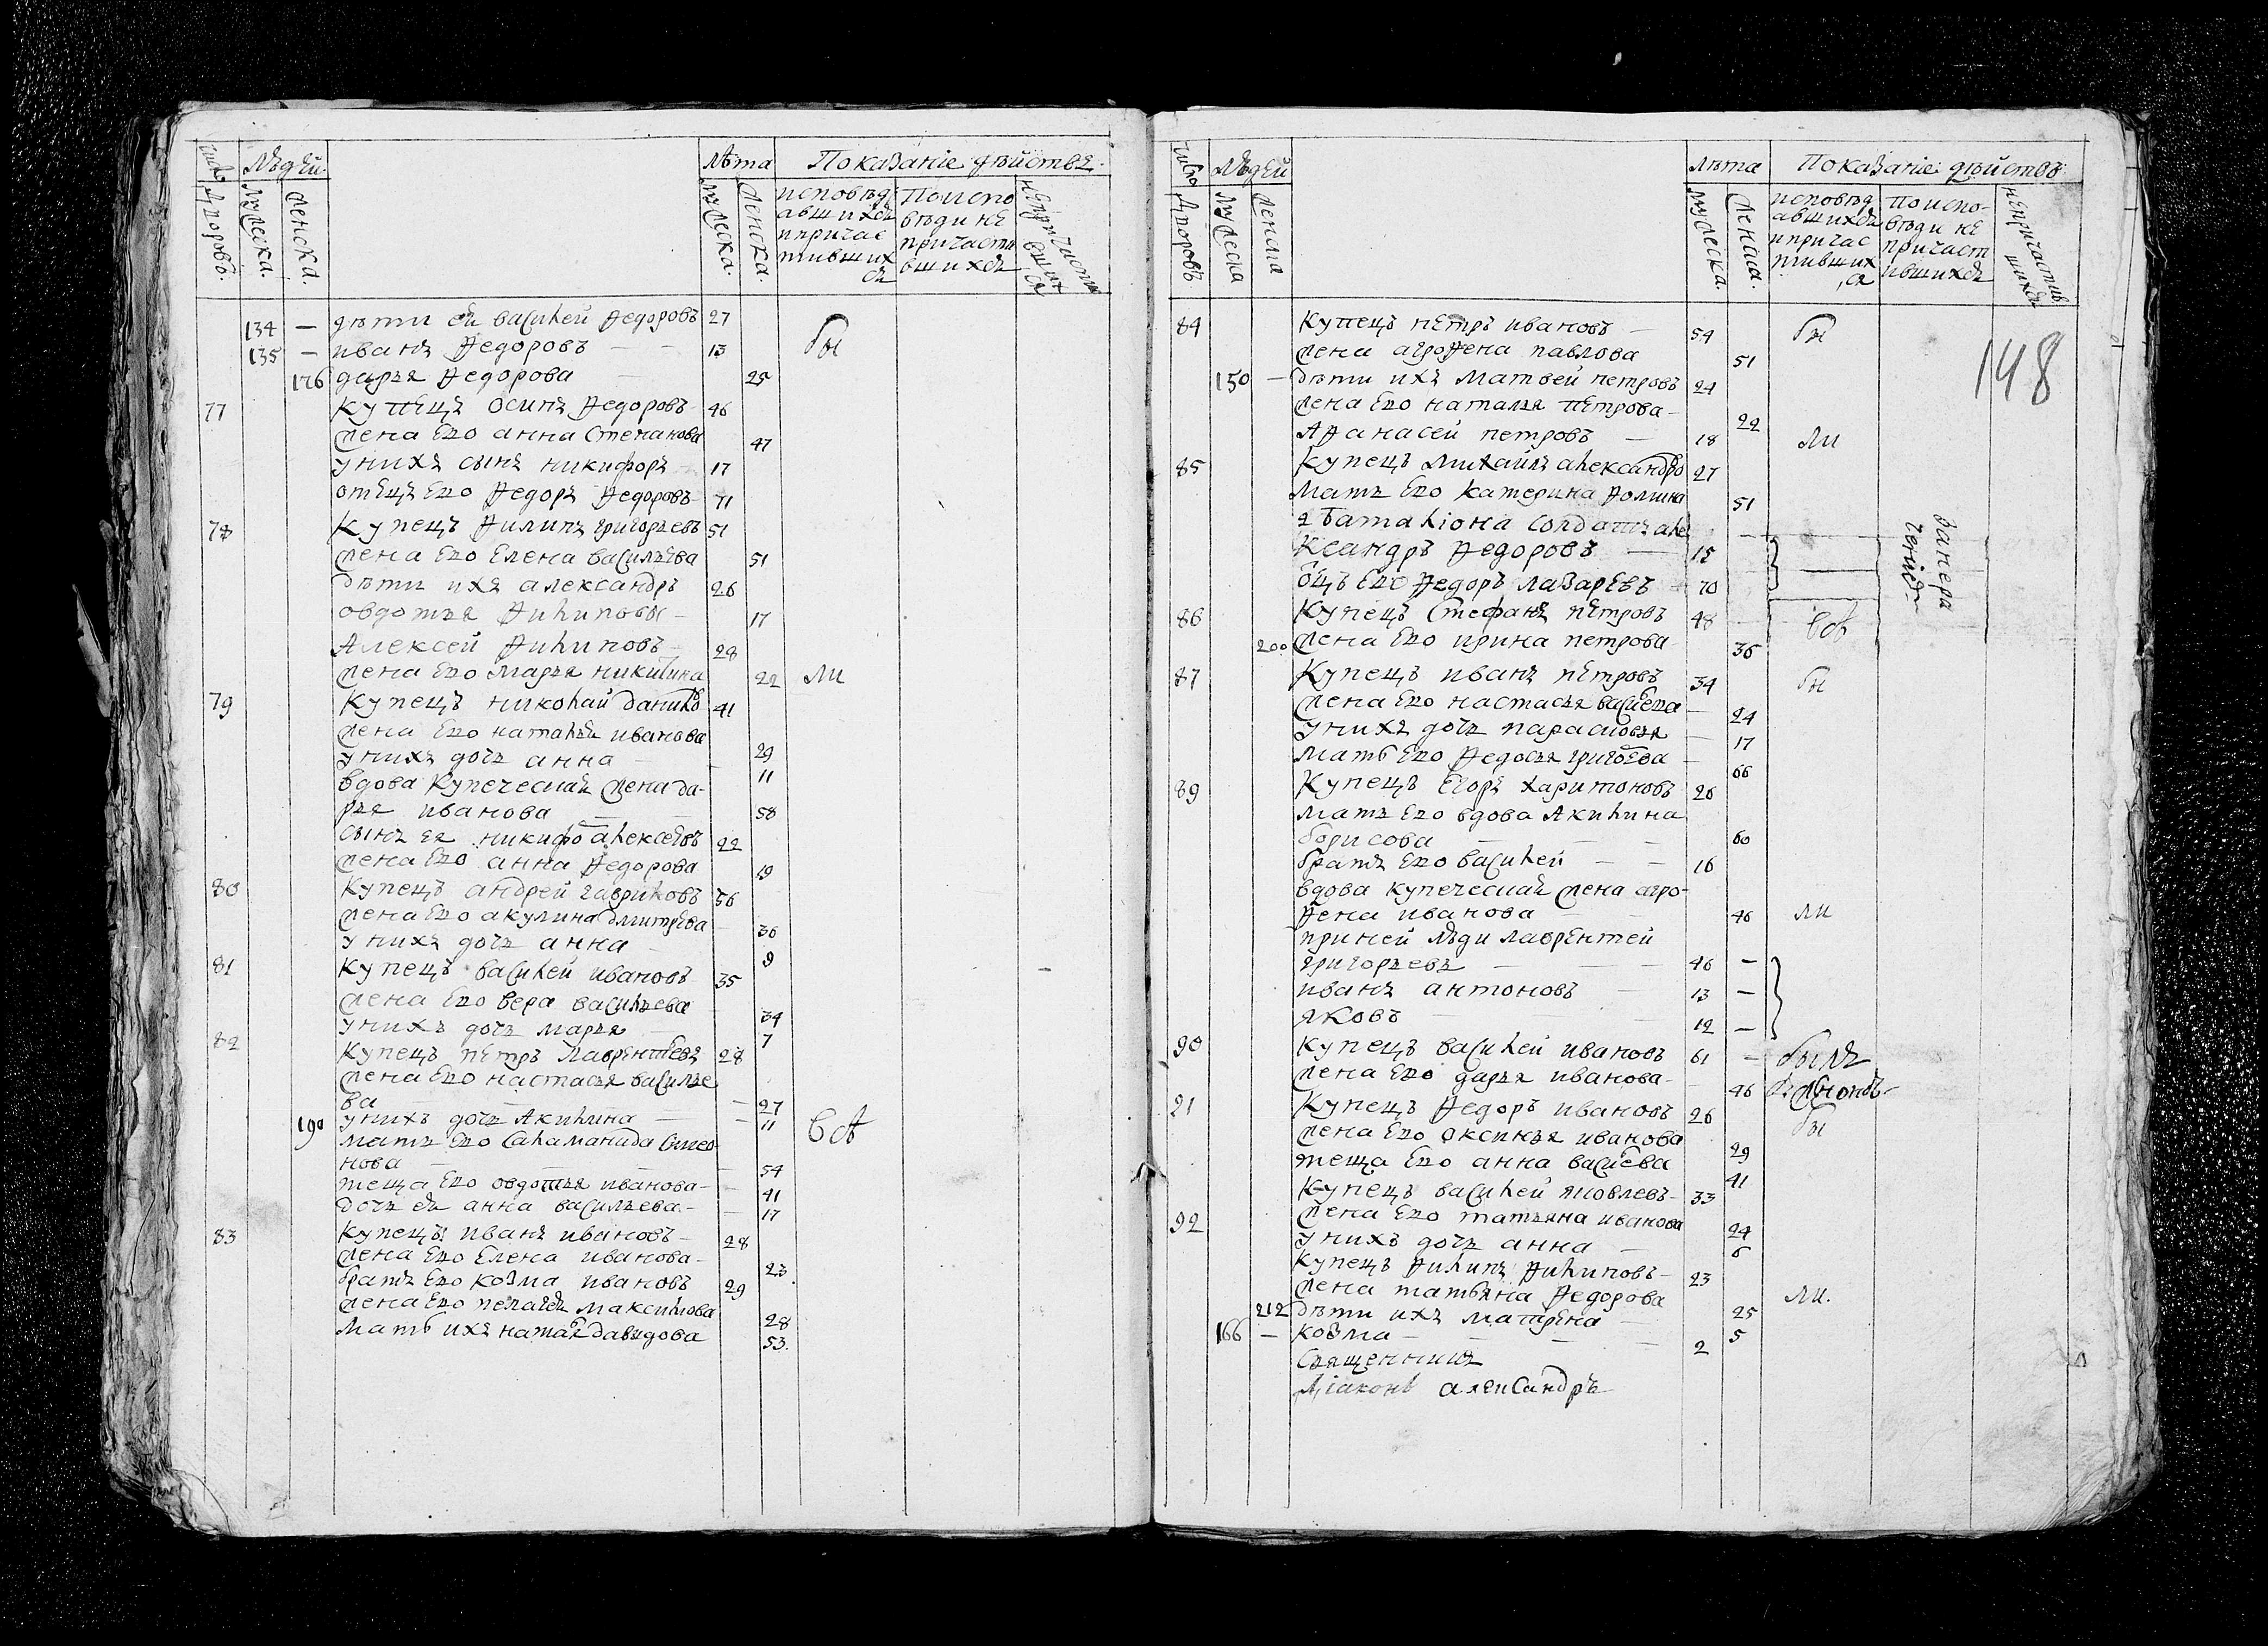 число дворовъ. людей лѣта Показанiе дѣйства.
мужеска. женска. мужеска. женска. исповѣдавшихся и причастившихся По исповѣди не причастившихся
134 — дѣти ея василей федоровъ 27 бы
135 — иванъ федоровъ — 13
176 дарья федорова — 25
77 купецъ осипъ федоровъ 46
жена ево анна степанова 47
у нихъ сынъ никифоръ 17
отецъ ево федоръ федоровъ 71
78 купецъ филипъ григорьевъ 51
жена ево елена васильева 51
дѣти ихъ александръ 26
овдотья филиповы — 17
Алексей филиповъ — 28
жена ево марья никитина 22 ли
79 купецъ николай данило 41
жена ево наталья иванова 29
у нихъ дочь анна — 11
вдова купеческая жена да-
рья иванова — 58
сынъ ея никифо алексеевъ 22
жена ево анна федорова 19
80 купецъ андрей гавриловъ 56
жена ево акулина дмитрева 36
у нихъ дочь анна — 9
81 купецъ василей ивановъ 35
жена ево вера васильева 34
у нихъ дочь марья 7
82 купецъ петръ лаврентьевъ 28
жена ево настасья василье
ва — 27
190 у нихъ дочь акилина — 11 всѣ
мать ево саламанида симео
нова — 54
теща ево овдотья иванова — 41
дочь ея анна васильева — 17
83 купецъ иванъ ивановъ — 28
жена ево елена иванова — 23
братъ ево козма ивановъ 29
жена ево пелагея максимова 28
мать ихъ наталья давыдова 53.
число дворовъ людей лѣта Показанiе дѣйствъ.
мужеска женска мужеска. женска. исповѣдавшихся и причастившихся По исповѣди не причастившихся не причастившихся
84 купецъ петръ ивановъ — 54 бы
148
жена агрофена павлова 51
150 — дѣти ихъ матвей петровъ 24
жена ево наталья петрова — 22
Афанасей петровъ — 18 ли
85 купецъ михайла александро 27
мать ево катерина фомина 51
2 баталiона солдатъ але
ксандръ федоровъ — 15
отцъ ево федоръ лазаревъ 70
86 купецъ стефанъ петровъ 48 всѣ
200 жена ево ирина петрова — 36
87 купецъ иванъ петровъ 34 бы
жена ево настасья васиева 24
у нихъ дочь парасковья — 17
мать ево федосья григоева — 66
89 купецъ егоръ харитоновъ 26
мать ево вдова акилина
борисова — 60
братъ ево василей — 16
вдова купеческая жена агро-
фена иванова — 46 ли
при ней люди лаврентей
григорьевъ — 46 —
иванъ антоновъ — 13 —
яковъ — 12 —
90 купецъ василей ивановъ 61 —
жена ево дарья иванова — 46
21 купецъ федоръ ивановъ 26 бы
жена ево оксинья иванова 29
теща ево анна васиева 41
купецъ василей яковлевъ — 33
92 жена ево татьяна иванова 24
у нихъ дочь анна — 6
купецъ филипъ филиповъ — 23
жена татьяна федорова 25 ли.
212 дѣти ихъ матрена — 5
166 — козма — 2
Священникъ
дiаконъ александръ